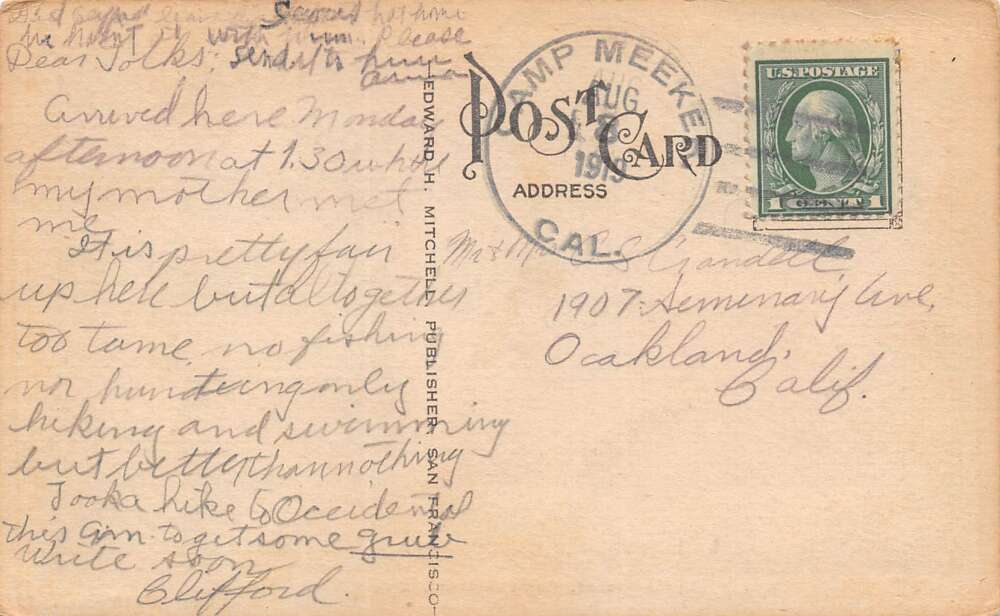 Dear Folks;
Arrived here Monday
afternoon at 1.30 when
my mother met
me
It is pretty fair
up here but altogether
too tame no fishing
nor hunting only
hiking and swimming
but better than nothing
Took a hike to Occidental
this a.m. to get some grub
write soon
Clifford.
with him. Please
send it to him
EDWARD H. MITCHELL, PUBLISHER, SAN FRANCISCO
POST CARD
ADDRESS
CAMP MEEKER
AUG
1919
CAL.
U.S. POSTAGE
1 CENT 1
Mr & Mrs Crandell,
1907 Seminary Ave,
Oakland,
Calif.